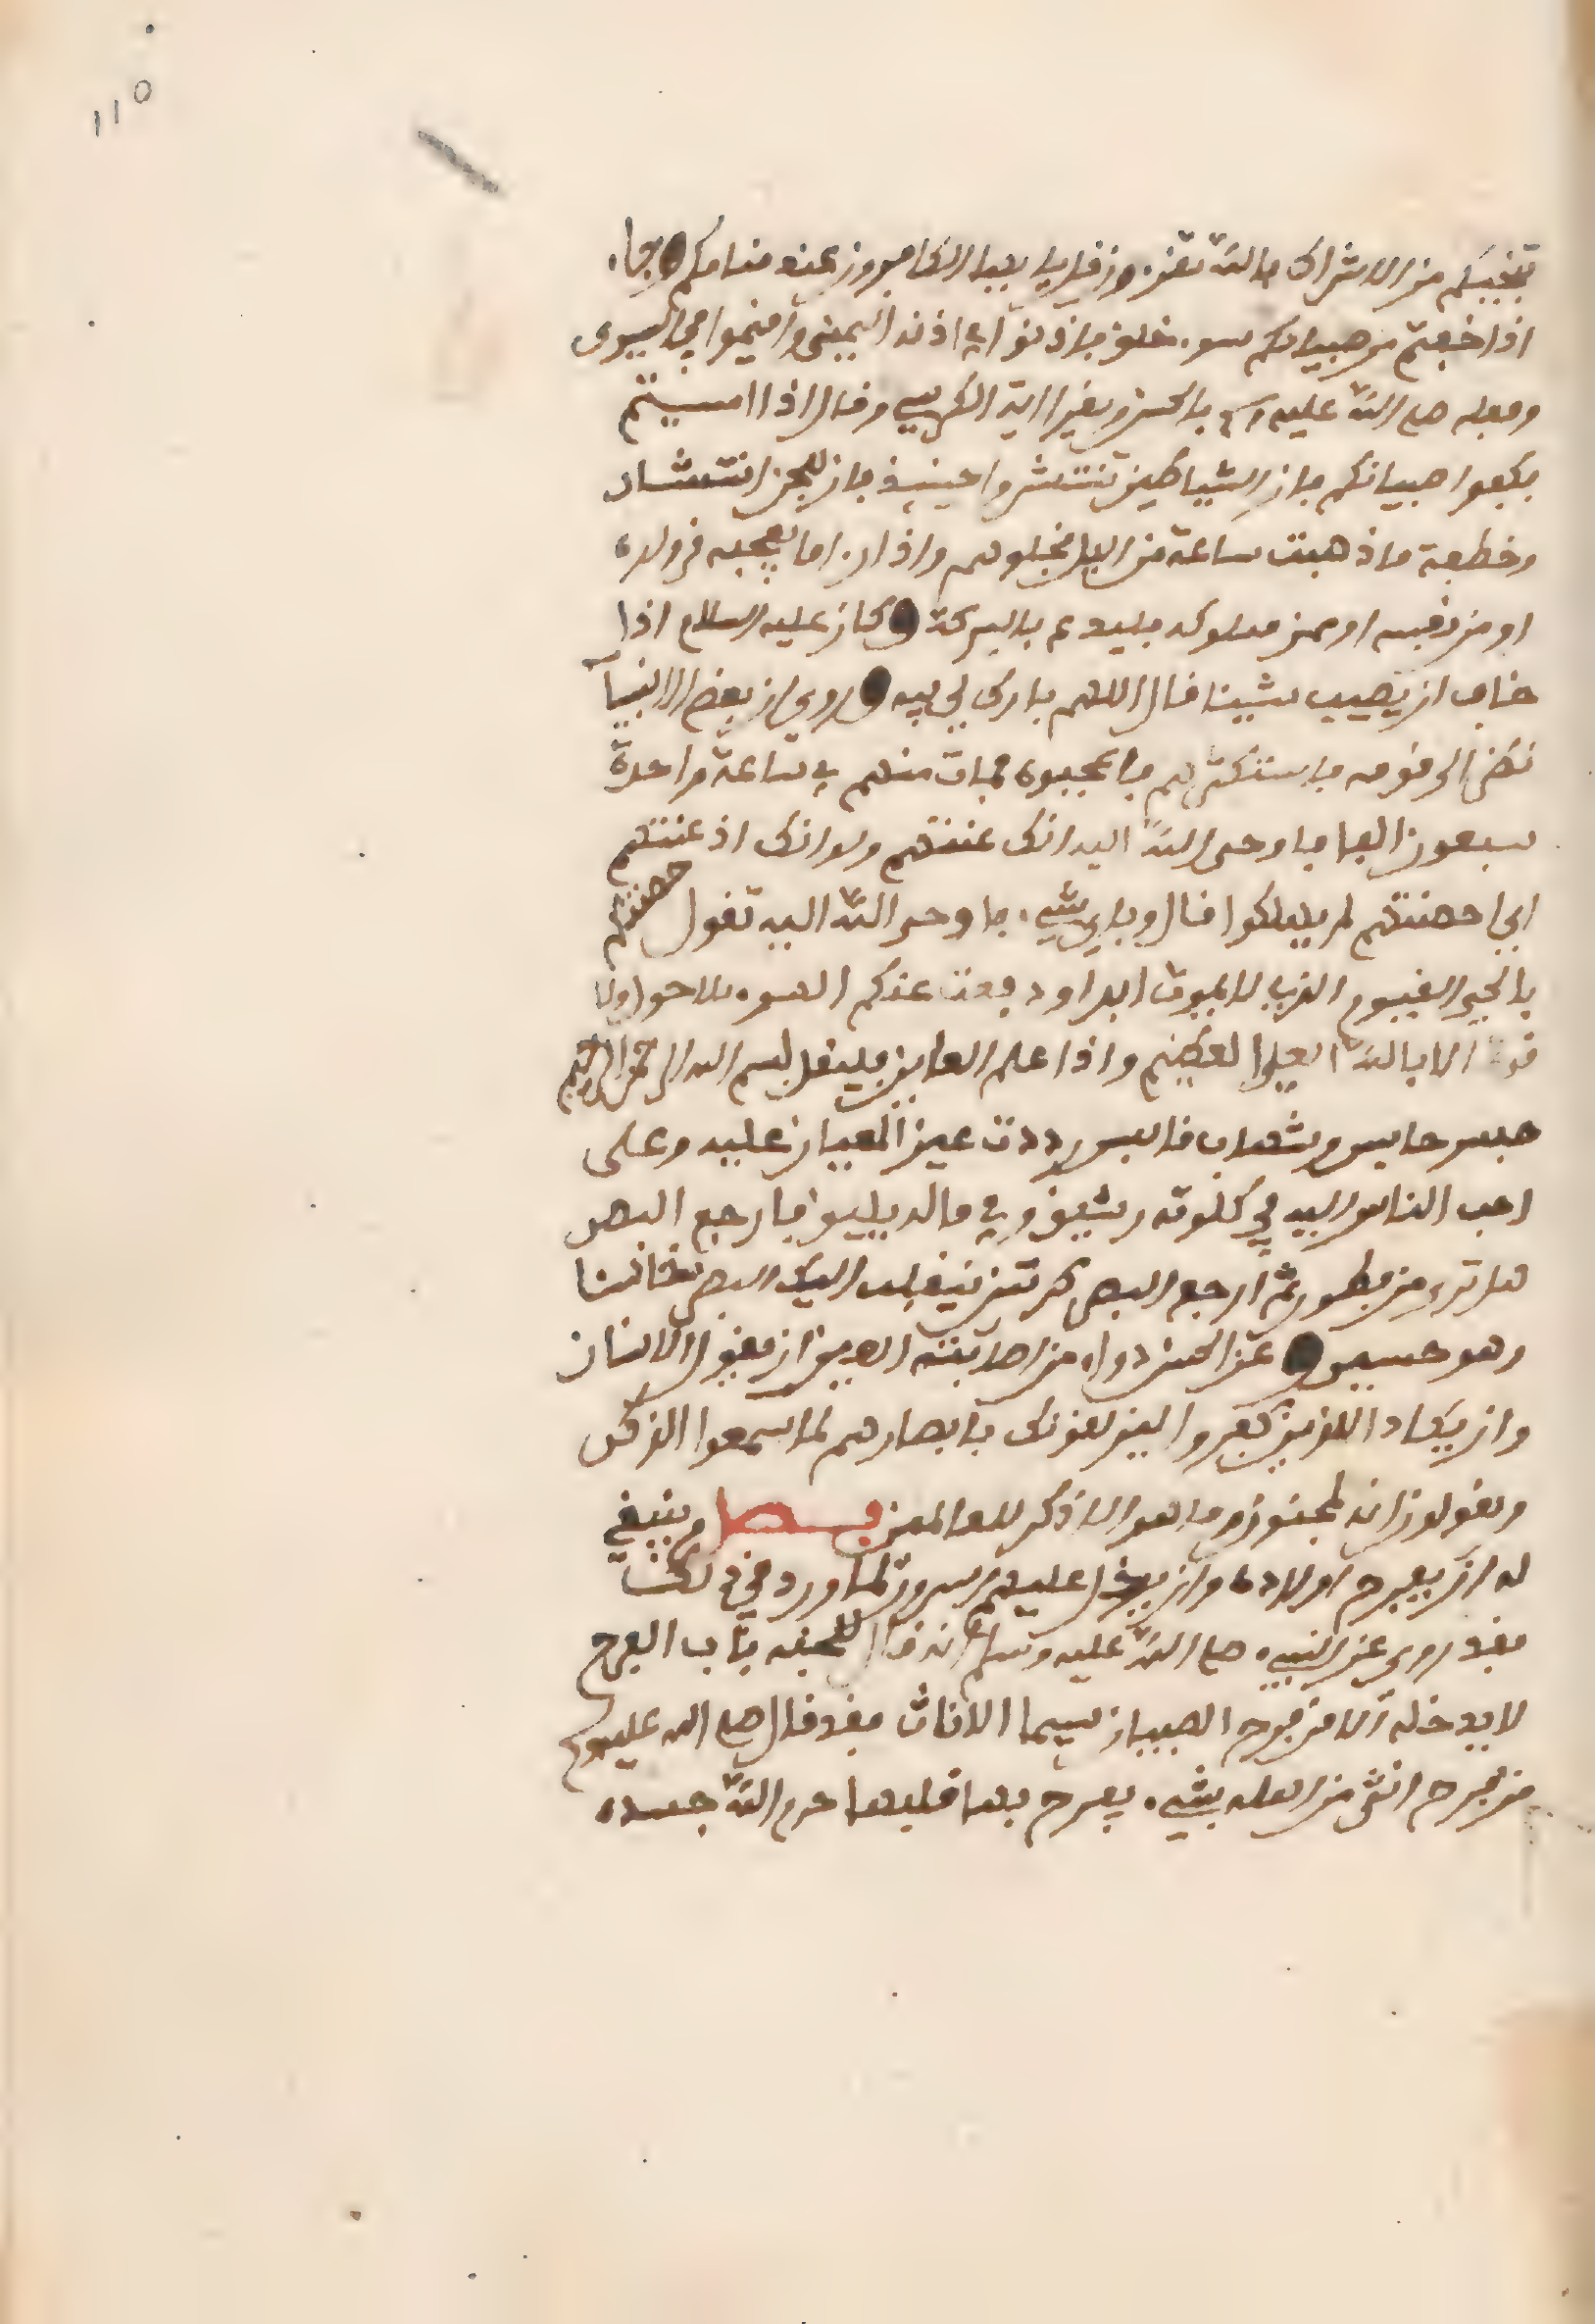 ١١٥
تنجيكم من الاشراك بالله تقرءون قل يا ايها الكافرون عند منامكم وجاء
اذا خفتم من صبيانكم سوء خلق فاذنوا في اذنه اليمنى واقيموا في اليسرى
وفعله صلى الله عليه وسلم بالحسن ويقرا اية الكرسي وقال اذا امسيتم
فكفوا صبيانكم فان الشياطين تنتشروا حينئذ فان للجن انتشار
وخطفة فاذا ذهبت ساعة من الليل فخلوهم واذا راى ما يعجبه في ولده
او من نفسه او من مملوكه فليدع بالبركة وكان عليه السلام اذا
خاف ان يصيب شيئا قال اللهم بارك لي فيه وروي ان بعض الانبياء
نظر الى قومه فاستكثرهم فاعجبوه فمات منهم في ساعة واحدة
سبعون الفا فاوحى الله اليه انك عنتهم ولو انك اذ عنتهم
اي حصنتهم لم يهلكوا قال وباي شيء فاوحى الله اليه تقول حصنتكم
بالحي القيوم الذي لا يموت ابدا ودفعت عنكم السوء بلا حول ولا
قوة الا بالله العلي العظيم واذا علم العاين فليقل بسم الله الرحمن الرحيم
حبس حابس وشهاب قابس رددت عين المعيان عليه وعلى
احب الناس اليه في كلوته رشيق وفي ماله يليق فارجع البصر
هل ترى من فطور ثم ارجع البصر كرتين ينقلب اليك البصر خاسئا
وهو حسير وعن الحسن دواء من اصابته العين ان يقول الانسان
وان يكاد الذين كفروا ليزلقونك بابصارهم لما سمعوا الذكر
ويقولون انه لمجنون وما هو الا ذكر للعالمين فصل وينبغي
له ان يفرح اولاده وان يدخل عليهم السرور لما ورد في ذلك
فقد روي عن النبيء صلى الله عليه وسلم انه قال للجنة باب الفرح
لا يدخله الا من فرح الصبيان سيما الاناث فقد قال صلى الله عليه وسلم
من فرح انثى من اهله بشيء يفرح بها قلبها حرم الله جسده